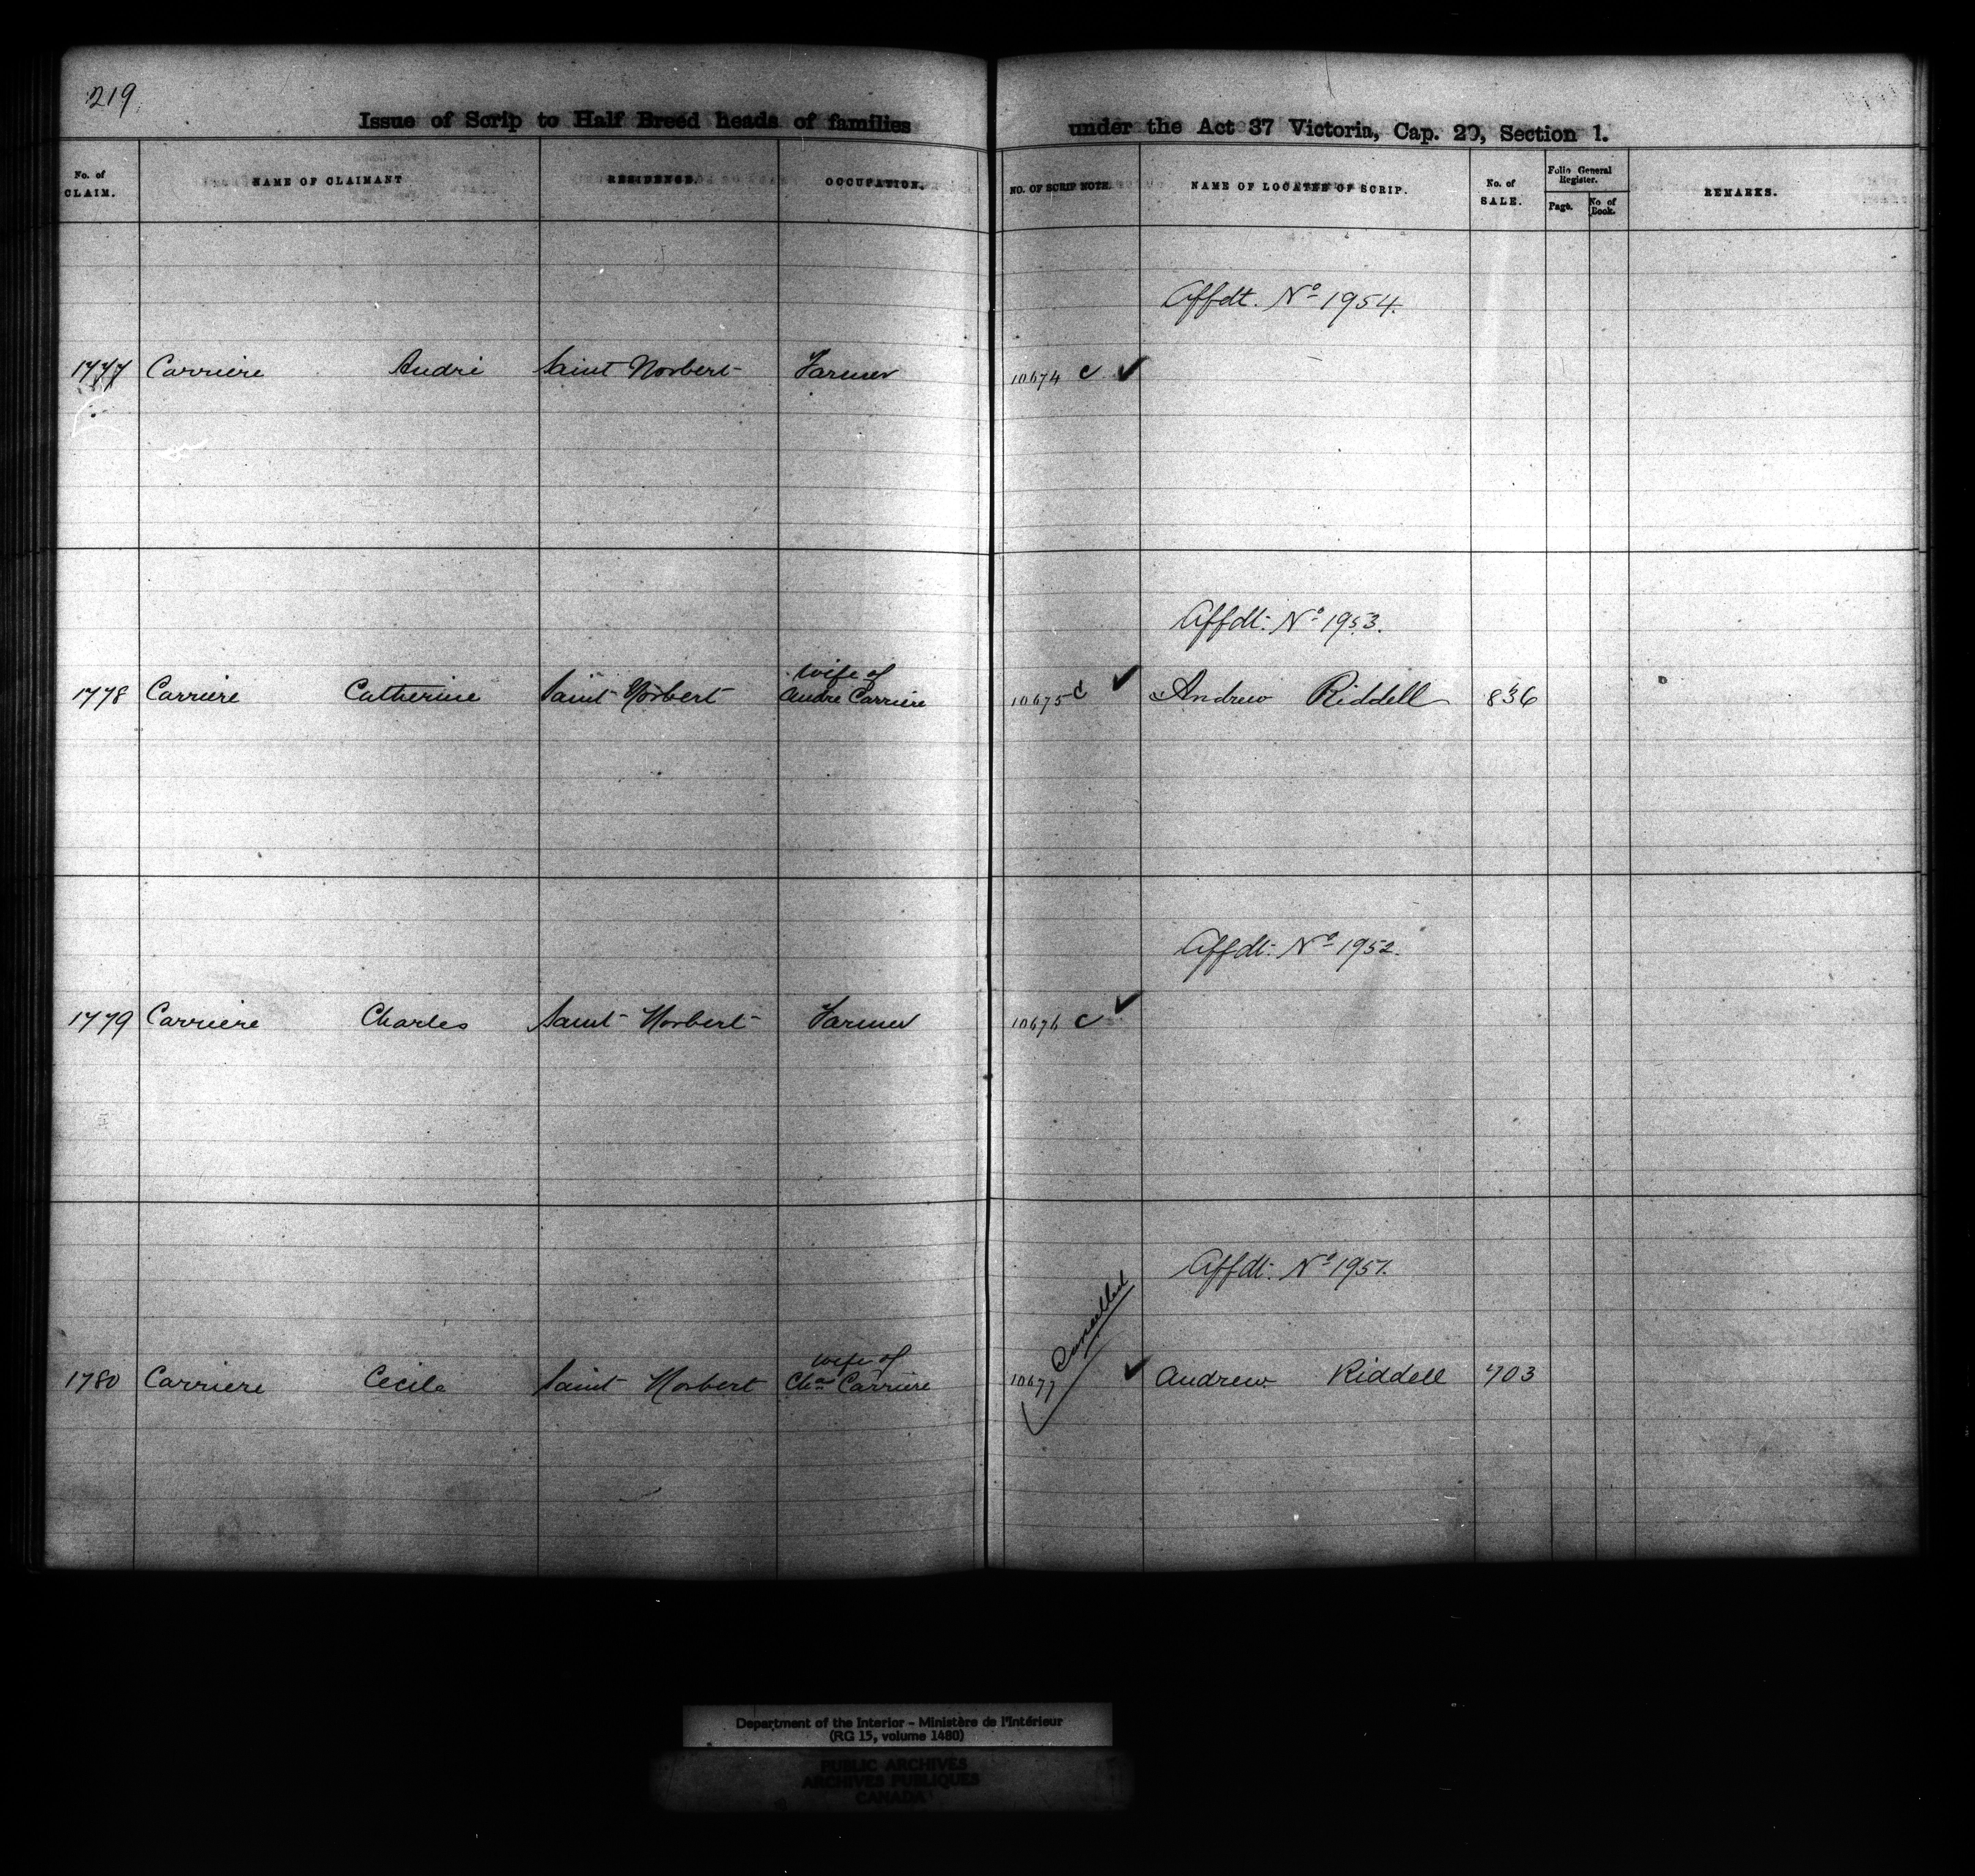 219
Issue of Scrip to Half Breed heads of families under the Act 37 Victoria, Cap. 20, Section 1.
No. of CLAIM. NAME OF CLAIMANT RESIDENCE. OCCUPATION. NO. OF SCRIP NOTE. NAME OF LOCATEE OF SCRIP. No. of SALE. Folio General Register. Page. No of Book. REMARKS.
Affdt. No 1954.
1777 Carriere André Saint Norbert Farmer 10674 c ✓
Affdt. No 1953.
wife of
1778 Carriere Catherine Saint Norbert Andre Carriere 10675 c ✓ Andrew Riddell 836
Affdt. No 1952.
1779 Carriere Charles Saint Norbert Farmer 10676 c ✓
Affdt. No 1951.
Cancelled
wife of
1780 Carriere Cecile Saint Norbert Chas Carriere 10677 ✓ Andrew Riddell 703
Department of the Interior - Ministère de l'Intérieur
(RG 15, volume 1480)
PUBLIC ARCHIVES
ARCHIVES PUBLIQUES
CANADA